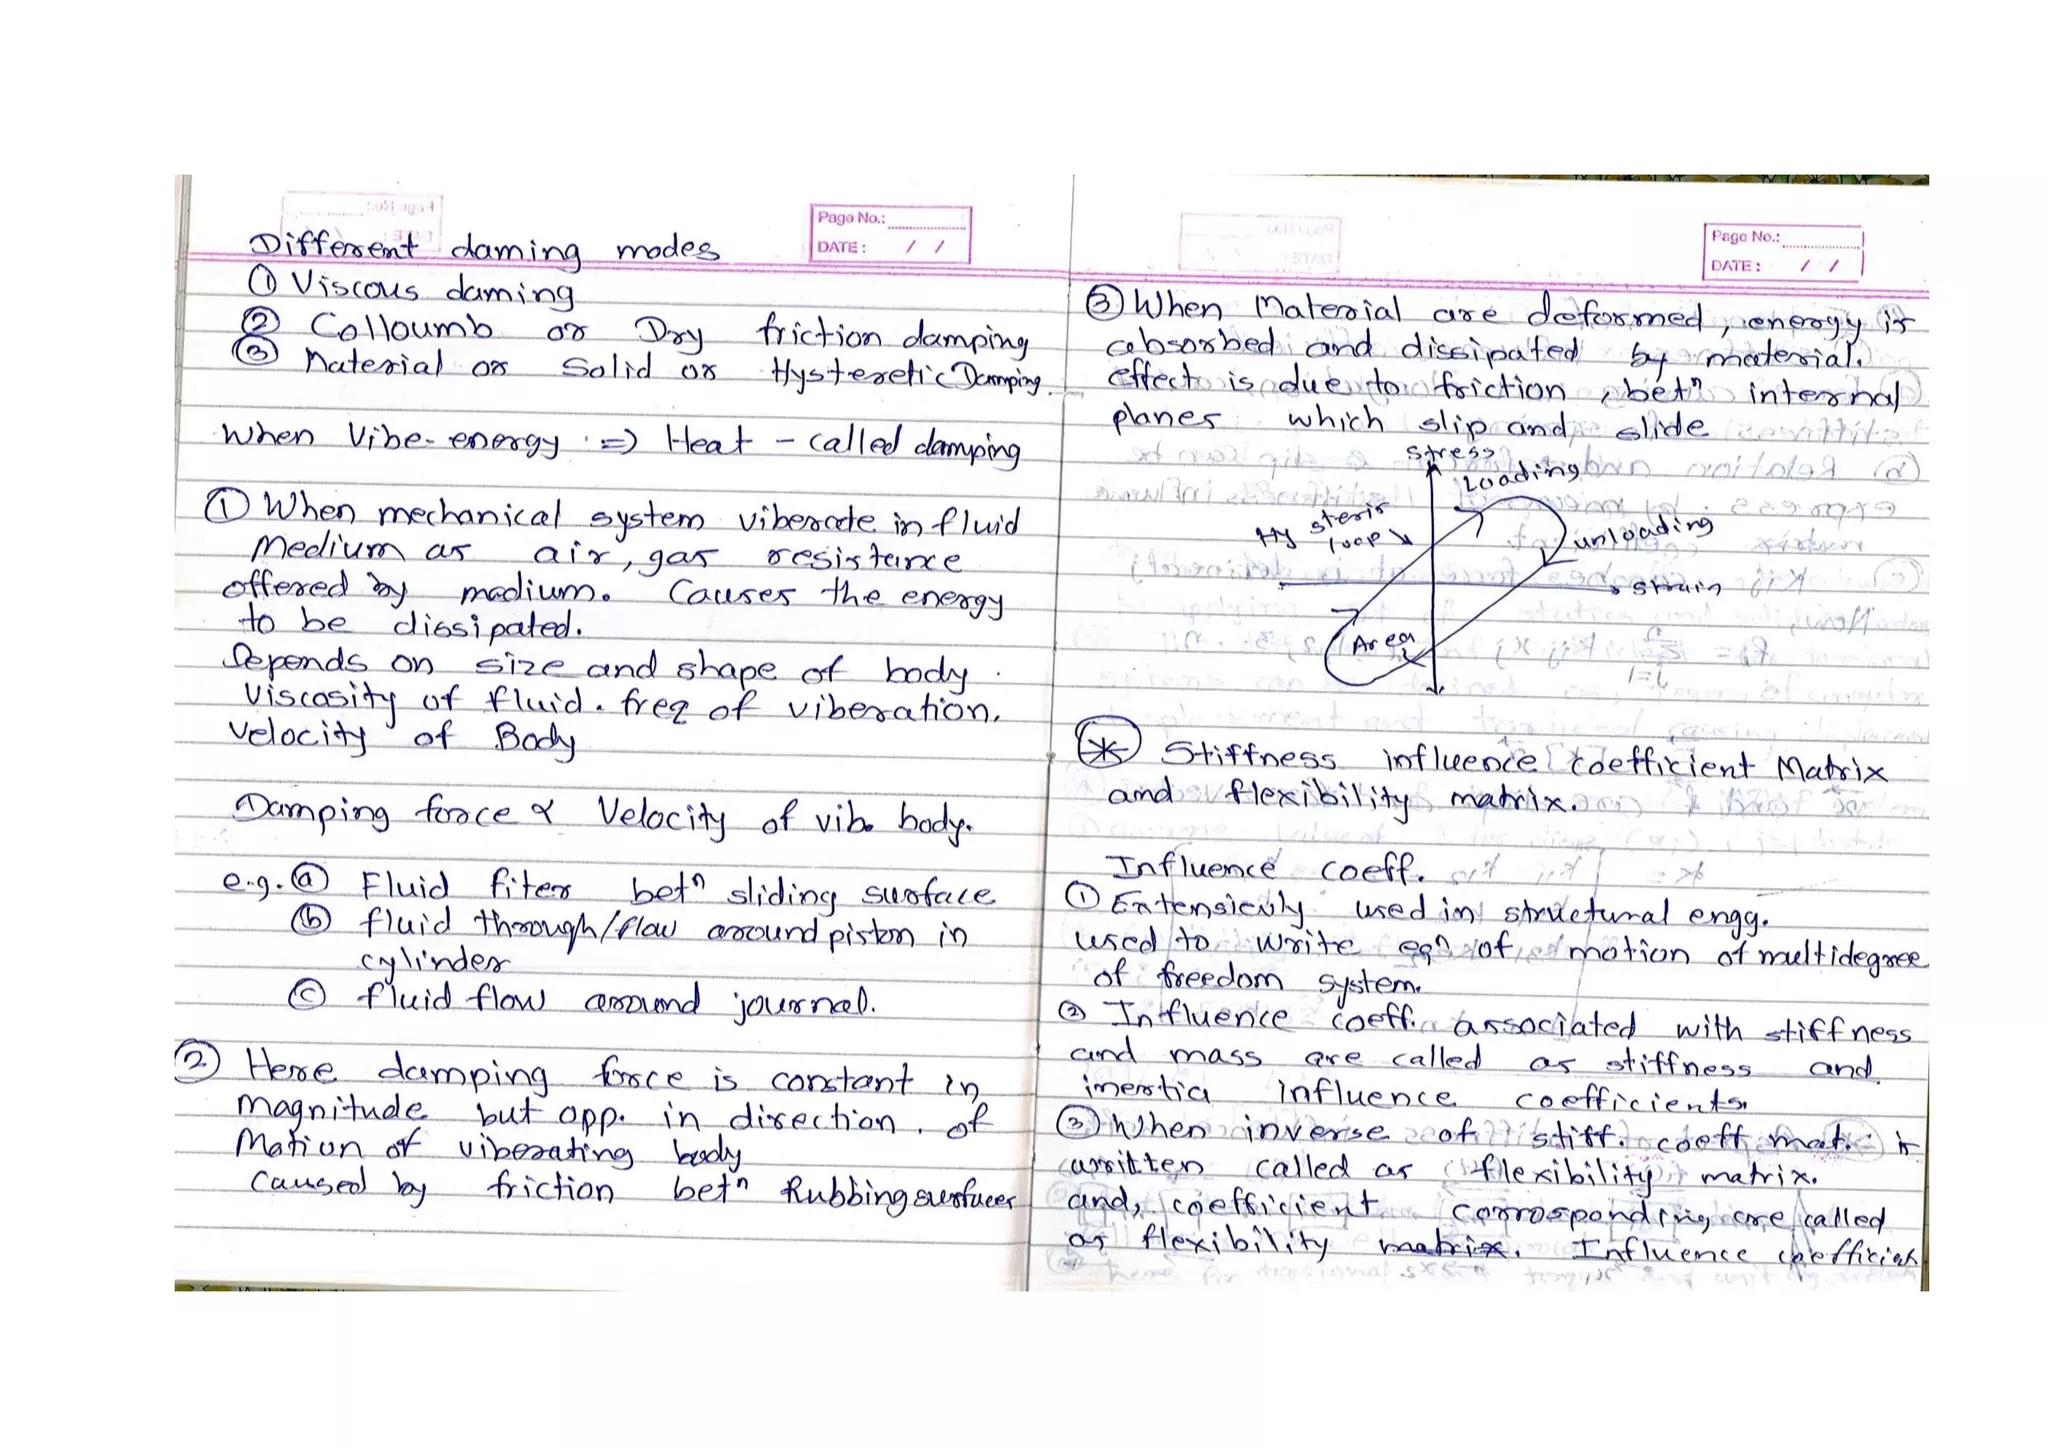 Page No.:
DATE : / /
Different daming modes
① Viscous daming
② Colloumb or Dry friction damping
③ Material or Solid or Hysteretic Damping.
When Vibe. energy => Heat - called damping
① When mechanical system viberate in fluid
Medium as air, gas resistance
offered by medium. Causes the energy
to be dissipated.
Depends on size and shape of body.
Viscosity of fluid. freq of viberation.
Velocity of Body
Damping force ∝ Velocity of vib. body.
e.g. ⓐ Fluid fiter betn sliding surface
ⓑ fluid through/flow around piston in
cylinder
ⓒ fluid flow around journal.
② Here damping force is constant in
magnitude but opp. in direction. of
Motion of viberating body
Caused by friction betn Rubbing surfaces
Page No.:
DATE : / /
③ When Material are deformed, energy is
absorbed and dissipated by material.
effect is due to friction, betn internal
planes which slip and slide
stress
Loading
Hysteris
loop
unloading
strain
Area
* Stiffness influence coefficient Matrix
and flexibility matrix.
Influence coeff.
① Extensievly used in structural engg.
used to write eqn of motion of multidegree
of freedom system.
② Influence coeff. associated with stiffness
and mass are called as stiffness and
inertia influence coefficients.
③ When inverse of stiff. coeff mat. is
written called as flexibility matrix.
and, coefficient corresponding are called
as flexibility matrix. Influence coefficient